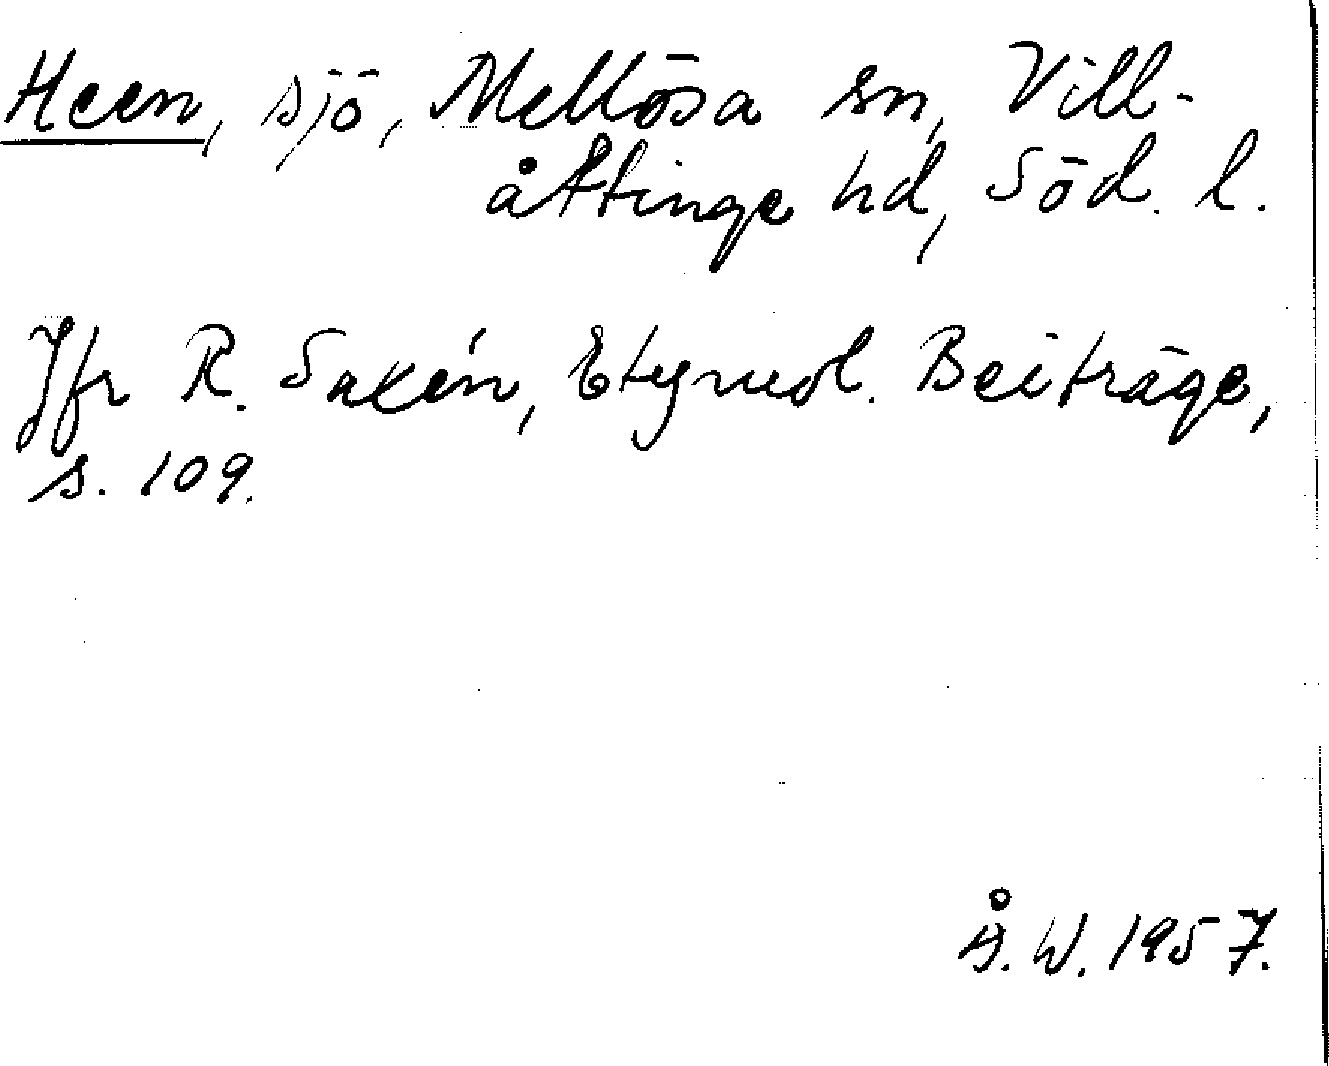 Heen, sjö, Mellösa sn, Vill-
åttinge hd, Söd. l.
Jfr R. Saxén, Etymol. Beiträge,
s. 109.
Å. W. 1957.